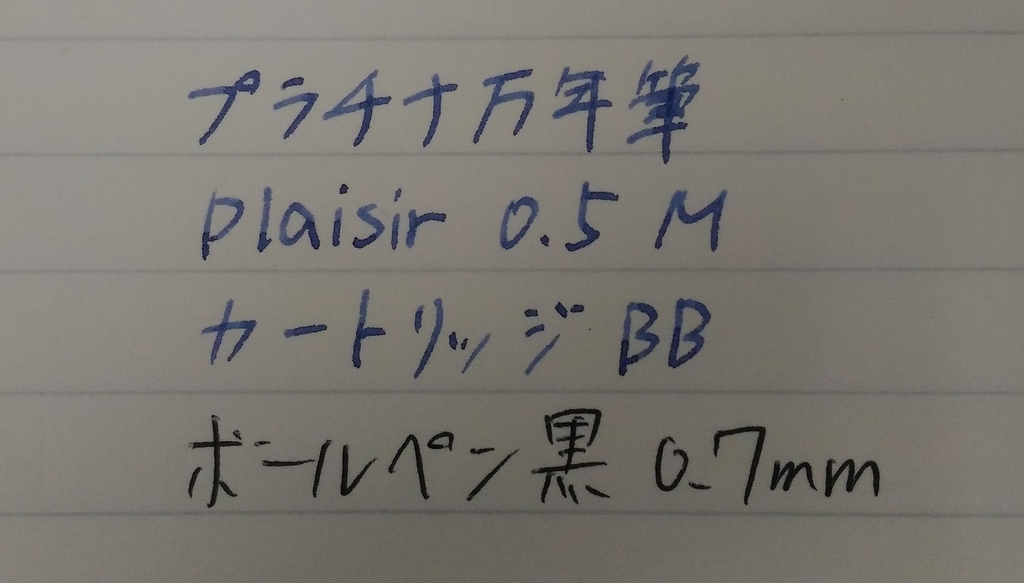 プラチナ万年筆
Plaisir 0.5 M
カートリッジ BB
ボールペン黒 0.7mm